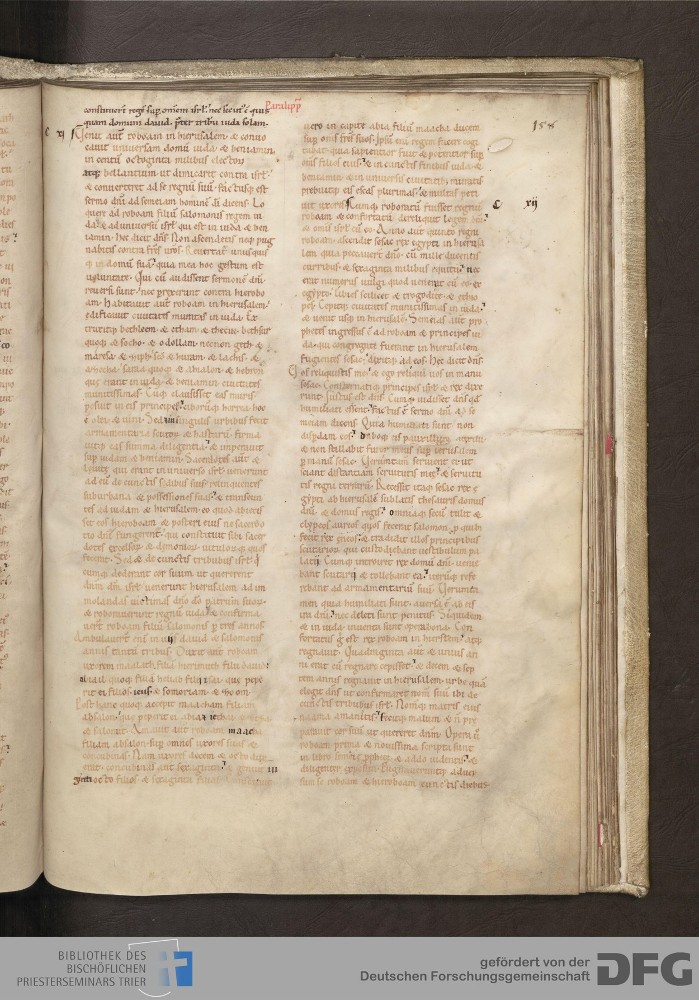 Paralipp
158
constituert rege sup omem isrl. nec secut e quis
quam domum dauid. pter tribu iuda solam.
C xi
Uenit aut roboam in hierusalem. & conuo
cauit uniuersam domu iuda. & beniamin
in centu octoginta milibus electoru
atq; bellantium. ut dimicaret contra isrl.
& conuerteret ad se regnu suu. fac tusq; est
sermo dni ad semeiam homine di dicens. Lo
quere ad roboam filiu salomonis regem iu
da. & ad uniuersu isrl qui est in iuda & ben
iamin. Hec dicit dns. Non ascendetis neq; pug
nabitis contra frs uros. Reuertat unusquis
q; in domu sua. quia mea hoc gestum est
uoluntate. Qui cu audissent sermone dni.
reuersi sunt. nec prexerunt contra hierobo
am. Habitauit aut roboam in hierusalem.
& edificauit ciuitates munitas in iuda. Ex
truxitq; bethleem. & etham. & thecue. bethsur
quoq; & socho. & odollam. necnon geth &
maresa. & ziph. sed & huram. & lachis. &
azecha. saraa quoq; & ahialon. & hebron
que erant in iuda & beniamin. ciuitates
munitissimas. Cuq; clausisset eas muris.
posuit in eis principes. ciborumq; horrea. hoc
e olei. & uini. Sed in singulis urbibus fecit
armamentaria scutoru & hastaru. firma
uitq; eas summa diligentia. & imperauit
sup iudam & beniamin. Sacerdotes aut &
leuite qui erant in uniuerso isrl. uenerunt
ad eu de cunctis sedibus suis. relinquentes
suburbana & possessiones suas. & transeun
tes ad iudam & hierusalem. eo quod abieciss
set eos hieroboam & posteri eius. ne sacerdo
tio dni fungerent. qui constituit sibi sacer
dotes excelsoru & demoniou. uitulouq; quos
fecerat. Sed & de cunctis tribubus isrl. qui
cumq; dederant cor suum ut quererent
dnm dm isrl. uenerunt hierusalem ad im
molandas uictimas dno do patrum suoru.
& roborauerunt regnu iuda. & confirma
uert roboam filiu salomonis p tres annos.
Ambulauert eni in uiis dauid & salomonis
annis tantu tribus. Duxit aut roboam
uxorem maalath filia hierimuth filii dauid.
abiail quoq; filia heliab filii isai. que pepe
rit ei filios. ieus. & somoriam. & zoom.
Post hanc quoq; accepit maacham filiam
absalon. que peperit ei abia & ethai & ziza
& salomit. Amauit aut roboam maacha
filiam absalon. sup omnes uxores suas &
concubinas. Nam uxores decem & octo dux
erat. concubinas aut sexaginta. & genuit ui
ginti octo filios & sexaginta filias. Constituit
uero in capite abia filium maacha ducem
sup oms frs suos. Ipsu eni regem facere cogi
tabat. quia sapientior fuit & potentior sup
oms filios eius. & in cunctis finibus iuda &
beniamin. & in uniuersis ciuitatib; muratis.
prebuitq; eis escas plurimas. & multas peti
uit uxores. Cumq; roboratu fuisset regnu
C xij
roboam & confortatu. dereliquit legem dni.
& omis isrl cu eo. Anno aut quinto regni
roboam. ascendit sesac rex egypti in hierusa
lem. quia peccauert dno. cu mille ducentis
curribus. & sexaginta milibus equitu. nec
erat numerus uulgi quod uenerat cu eo ex
egypto. libies scilicet & trogodite & ethio
pes. Cepitq; ciuitates munitissimas in iuda.
& uenit usq; in hierusale. Semeias aut pro
phetes ingressus e ad roboam & principes iu
da. qui congregati fuerant in hierusalem
fugientes sesac. dixitq; ad eos. Hec dicit dns.
Uos reliquistis me. & ego reliqui uos in manu
sesac. Consternatiq; principes isrl & rex dixe
runt. Iustus est dns. Cumq; uidisset dns qd
humiliati essent. factus e sermo dni ad se
meiam dicens. Quia humiliati sunt. non
disperdam eos. daboq; eis pauxillum auxilii.
& non stillabit furor meus sup hierusalem
p manu sesac. Ueruntam seruient ei ut
sciant distantiam seruitutis mee & seruitu
tis regni terraru. Recessit itaq; sesac rex e
gypti ab hierusale. sublatis thesauris domus
dni & domus regis. omniaq; secu tulit. &
clypeos aureos quos fecerat salomon. p quib;
fecit rex eneos. & tradidit illos principibus
scutarioru. qui custodiebant uestibulum pa
latii. Cumq; introiret rex domu dni. uenie
bant scutarii & tollebant eos. iterumq; refe
rebant ad armamentariu suu. Uerunta
men quia humiliati sunt. auersa e ab eis
ira dni. nec deleti sunt penitus. Siquidem
& in iuda inuenta sunt opera bona. Con
fortatus e g rex roboam in hierslem. atq;
regnauit. Quadraginta aut & unius an
ni erat cu regnare cepisset. & decem & sep
tem annis regnauit in hierusalem. urbe qua
elegit dns ut confirmaret nom suu ibi de
cunctis tribubus isrl. Nomq; matris eius
naama amanitis. Fecitq; malum. & n pre
parauit cor suu ut quereret dnm. Opera u
roboam prima & nouissima scripta sunt
in libro semeie pphete. & addo uidentis. &
diligenter exposita. Pugnaueruntq; aduer
sum se roboam & hieroboam cunctis diebus.
BIBLIOTHEK DES
BISCHÖFLICHEN
PRIESTERSEMINARS TRIER
gefördert von der
Deutschen Forschungsgemeinschaft
DFG